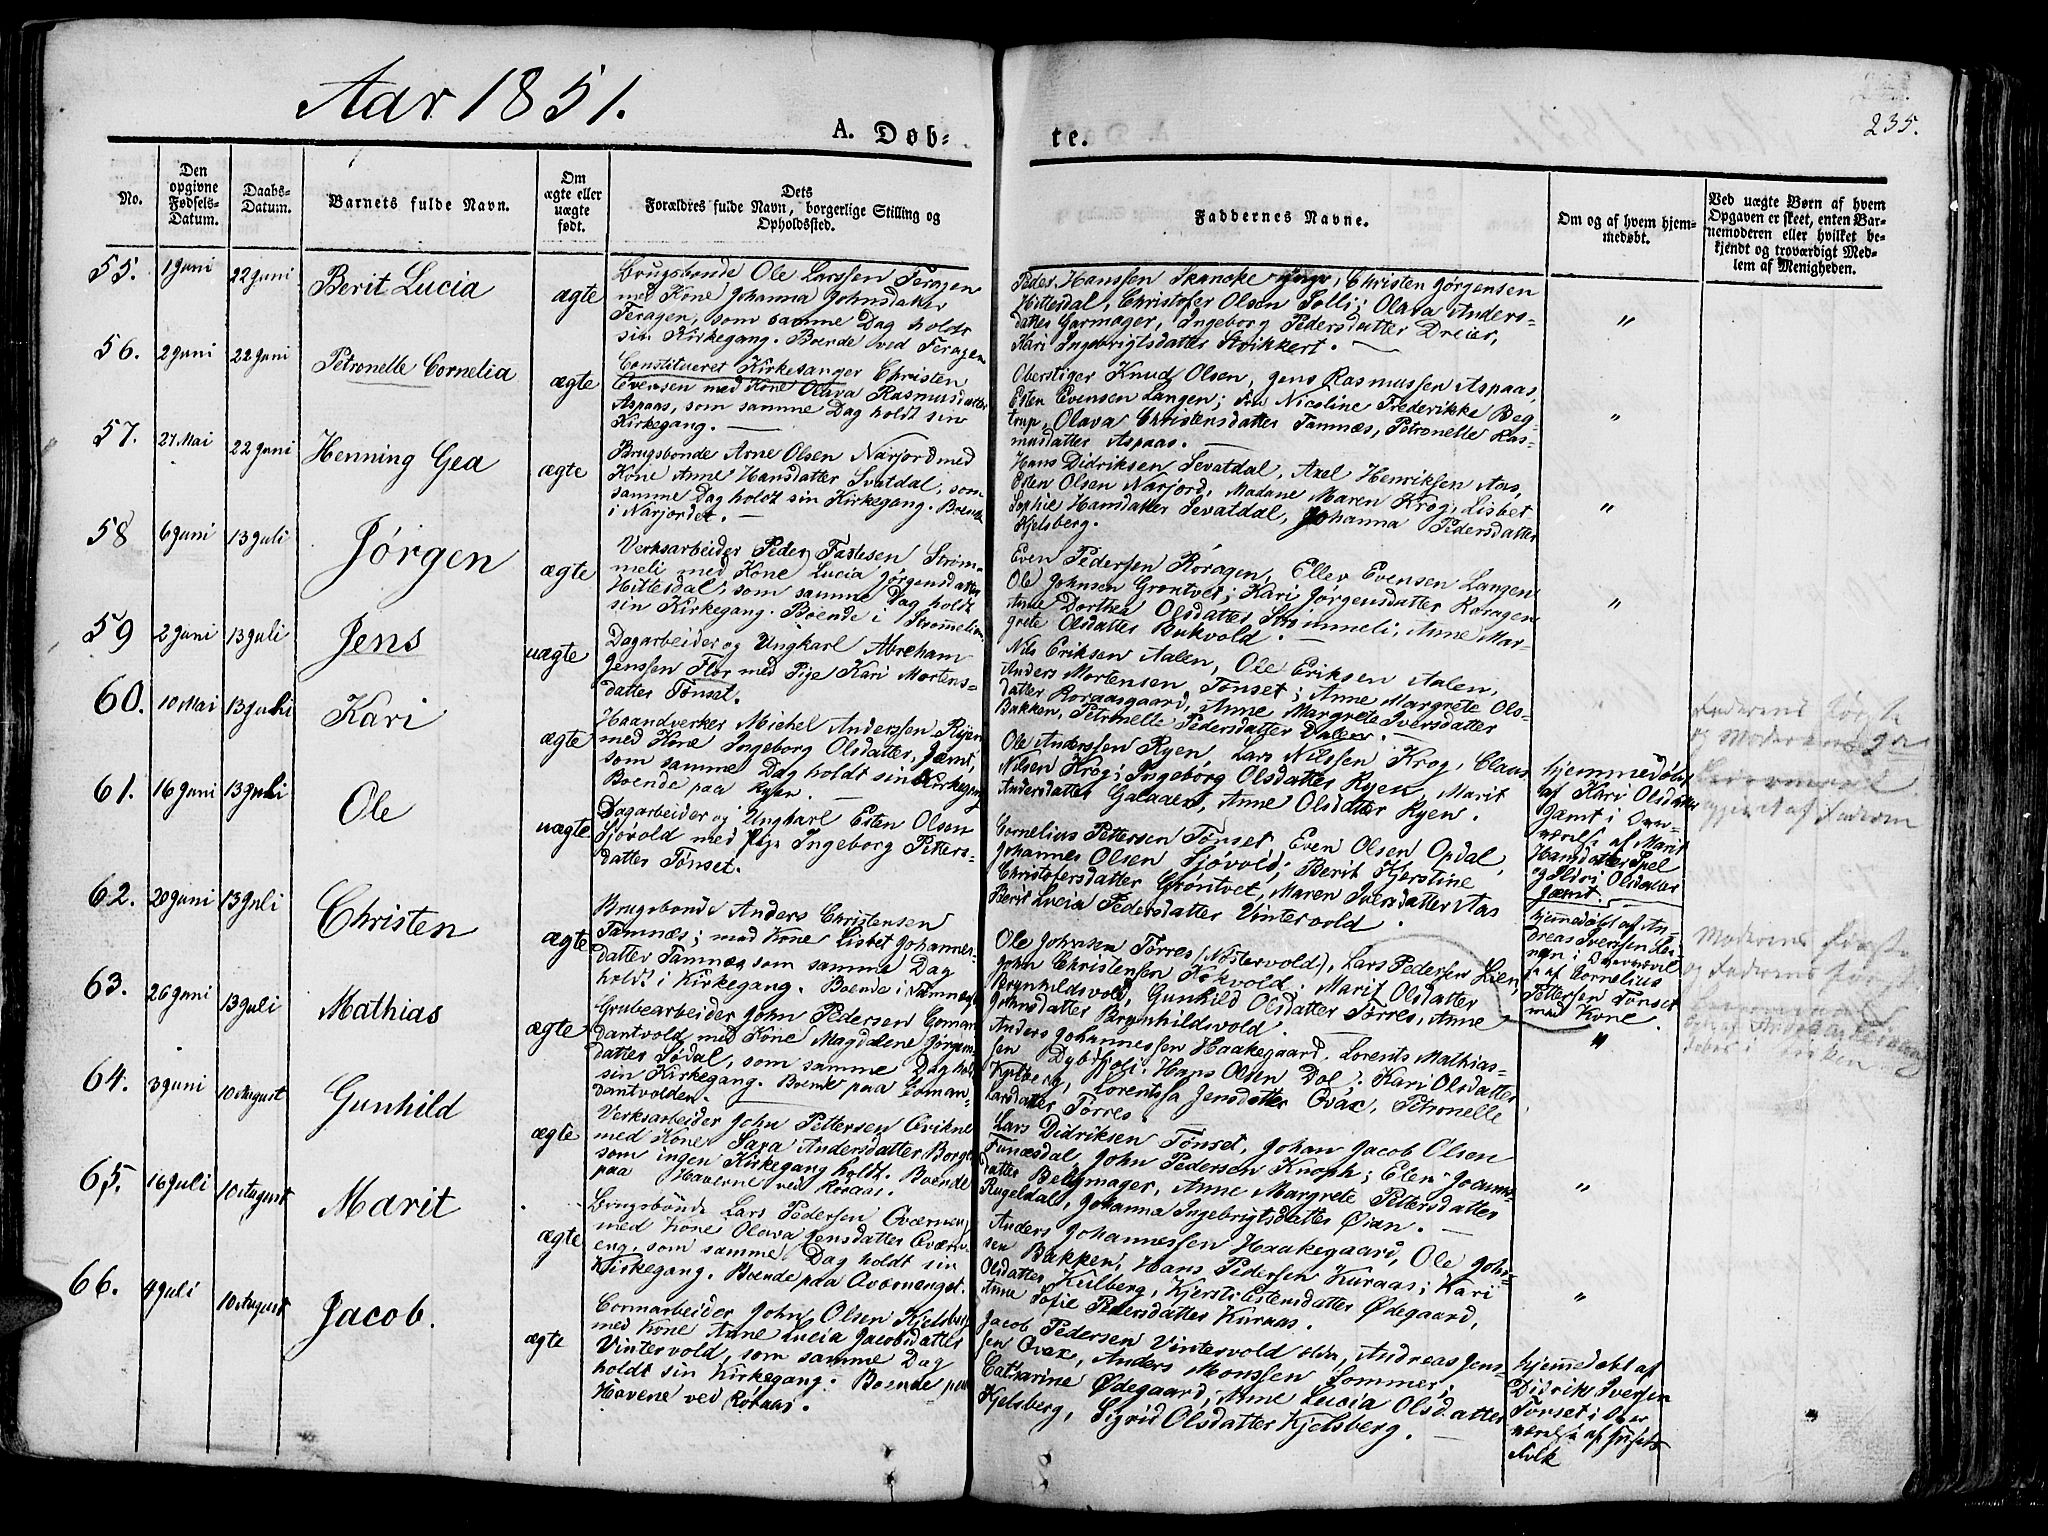 Aar 1851.
A. Døb-
te.
235.
No.
Den
opgivne
Fødsels-
Datum.
Daabs-
Datum.
Barnets fulde Navn.
Om
ægte eller
uægte
født.
Dets
Forældres fulde Navn, borgerlige Stilling og
Opholdssted.
Faddernes Navne.
Om og af hvem hjem-
medøbt.
Ved uægte Børn af hvem
Opgaven er skeet, enten Bar-
nemoderen eller hvilket be-
kjendt og troværdigt Med-
lem af Menigheden.
55.
1 Juni
22 Juni
Berit Lucia
ægte
Brugsbonde Ole Larssen Feragen
med Kone Johanna Johnsdatter
Feragen, som samme Dag holdt
sin Kirkegang. Boende ved Feragen
Peder Hanssen Skancke yngr, Christen Jørgensen
Hittesdal, Christofer Olsen Solli; Olava Anders-
datter Garmager, Ingeborg Pedersdatter Dreier,
Kari Ingebrigtsdatter Strikkert.
"
56.
2 Juni
22 Juni
Petronelle Cornelia
ægte
Constitueret Kirkesanger Christen
Evensen med Kone Olava Rasmusdatter
Aspaas, som samme Dag holdt sin
Kirkegang.
Oberstiger Knud Olsen, Jens Rasmussen Aspaas,
Esten Evensen Langen; Fru Nicoline Frederikke Beg-
trup, Olava Christensdatter Tamnæs, Petronelle Ras-
musdatter Aspaas.
"
57.
27 Mai
22 Juni
Henning Gea
ægte
Brugsbonde Arne Olsen Narjord med
Kone Anne Hansdatter Svatdal, som
samme Dag holdt sin Kirkegang. Boende
i Narjordet.
Hans Didriksen Sevatdal, Axel Henriksen Aas,
Esten Olsen Narjord, Madame Maren Krog, Lisbet
Sophie Hansdatter Sevatdal, Johanna Pedersdatter
Kjelsberg.
"
58
6 Juni
13 Juli
Jørgen
ægte
Verksarbeider Peder Fastesen Strøm-
meli med Kone Lucia Jørgensdatter
Hittesdal, som samme Dag holdt
sin Kirkegang. Boende i Strømmelien
Even Pedersen Røragen, Ellev Evensen Langen
Ole Johnsen Grøntvet; Kari Jørgensdatter Røragen
Anne Dorthea Olsdatter Strømmeli, Anne Mar-
grete Olsdatter Bukvold.
"
59
2 Juni
13 Juli
Jens
uægte
Dagarbeider og Ungkarl Abreham
Jenssen Flor med Pige Kari Mortens-
datter Tønset.
Nils Eriksen Aalen, Ole Eriksen Aalen,
Anders Mortensen Tønset; Anne Margrete Ols-
datter Roraasgaard, Anne Margrete Iversdatter
Bakken, Petronelle Pedersdatter Dalen.
Faderens første
og Moderens
Leiermaal
af Faderen
60.
10 Mai
13 Juli
Kari
ægte
Haandverker Michel Anderssen Ryen
med Kone Ingeborg Olsdatter Jæmt,
som samme Dag holdt sin Kirkegang
Boende paa Ryen
Ole Anderssen Ryen, Lars Nilssen Krog, Claus
Nilsen Krog; Ingeborg Olsdatter Ryen, Marit
Andersdatter Galaaen, Anne Olsdatter Ryen.
hjemmedøbt
af Kari Olsdatter
Jæmt i Over-
værelse af Marit
Hansdatter Spel
og Eldri Olsdatter
Jæmt.
61.
16 Juni
13 Juli
Ole
uægte
Dagarbeider og Ungkarl Esten Olsen
Sjøvold med Pige Ingeborg Petters-
datter Tønset.
Cornelius Pettersen Tønset, Even Olsen Opdal,
Johannes Olsen Sjøvold; Berit Kjerstine
Christofersdatter Grøntvet, Maren Iversdatter Aas
Berit Lucia Pedersdatter Vintervold.
hjemmedøbt af An-
dreas Iversen Lei-
gen i Overværel-
se af Cornelius
Pettersen Tønset
med Kone.
Moderens første
og Faderens
62.
20 Juni
13 Juli
Christen
ægte
Brugsbonde Anders Christensen
Tamnæs; med Kone Lisbet Johannes-
datter Tamnæs som samme Dag
holdt i Kirkegang. Boende i Tamnæs
Ole Johnsen Tørres (Nøstervold), Lars Pedersen Lien,
John Christensen Kokvold; Marit Olsdatter
Brynhildsvold, Gunhild Olsdatter Tørres, Anne
Johnsdatter Brynhildsvold.
"
63.
26 Juni
13 Juli
Mathias
ægte
Grubearbeider John Pedersen Coman-
dantvold med Kone Magdalene Jørgens-
datter Sødal, som samme Dag holdt
sin Kirkegang. Boende paa Coman-
dantvolden.
Anders Johannessen Haakegaard, Lorents Mathias-
sen Dybdsøli, Hans Olsen Dol; Kari Olsdatter
Kulberg, Lorentsa Jensdatter Qvax, Petronelle
Larsdatter Tørres.
64.
3 Juni
10 August
Gunhild
ægte
Verksarbeider John Pettersen Qvikne
med Kone Sara Andersdatter Borge
som ingen Kirkegang holdt. Boende
paa Haverne ved Røraas.
Lars Didriksen Tønset, Johan Jacob Olsen
Funæsdal, John Pedersen Knoph; Elen Joachims-
datter Bekymager, Anne Margrete Pettersdatter
Rugeldal, Johanna Ingebrigtsdatter Øian.
"
65.
16 Juli
10 August
Marit
ægte
Brugsbonde Lars Pedersen Qværnen
med Kone Olava Jensdatter Qværn-
eng, som samme Dag holdt sin
Kirkegang. Boende paa Qværnenget.
Anders Johannessen Haakegaard, Ole John-
sen Bakken, Hans Pedersen Kuraas; Kari
Olsdatter Kulberg, Kjersti Estensdatter Ødegaard,
Anne Sofie Pedersdatter Kuraas.
"
66.
4 Juli
10 August
Jacob.
ægte
Cornarbeider John Olsen Kjelsberg
med Kone Anne Lucia Jacobsdatter
Vintervold, som samme Dag
holdt sin Kirkegang. Boende paa
Havene ved Røraas.
Jacob Pedersen Vintervold eldre, Andreas Jens-
sen Qvax, Anders Monssen Sommer;
Catharine Ødegaard, Anne Lucia Olsdatter
Kjelsberg, Sigrid Olsdatter Kjelsberg.
hjemmedøbt af
Didrik Iversen
Tønset i Over
værelse af Husets
Folk